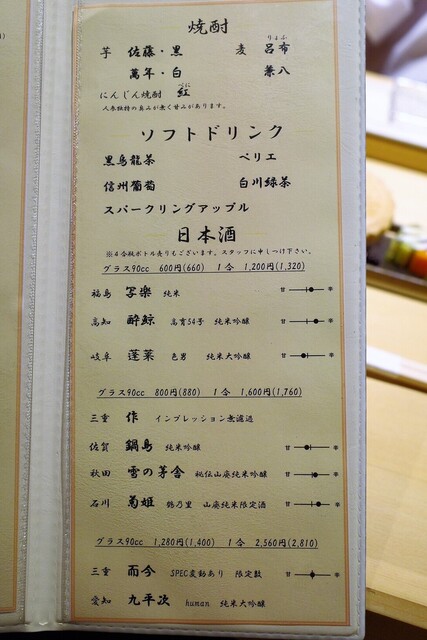 焼酎
芋 佐藤・黒 麦 呂布
りょふ
萬年・白 兼八
にんじん焼酎 紅
べに
人参独特の臭みが無く甘みがあります。
ソフトドリンク
黒烏龍茶 ペリエ
信州葡萄 白川緑茶
スパークリングアップル
日本酒
※4合瓶ボトル売りもございます。スタッフに申しつけ下さい。
グラス90cc 600円(660) 1合 1,200円(1,320)
福島 写楽 純米 甘 辛
高知 酔鯨 高育54号 純米吟醸 甘 辛
岐阜 蓬莱 色男 純米大吟醸 甘 辛
グラス90cc 800円(880) 1合 1,600円(1,760)
三重 作 インプレッション無濾過
佐賀 鍋島 純米吟醸 甘 辛
秋田 雪の茅舎 秘伝山廃純米吟醸 甘 辛
石川 菊姫 鶴乃里 山廃純米限定酒 甘 辛
グラス90cc 1,280円(1,400) 1合 2,560円(2,810)
三重 而今 SPEC変動あり 限定数 甘 辛
愛知 九平次 human 純米大吟醸